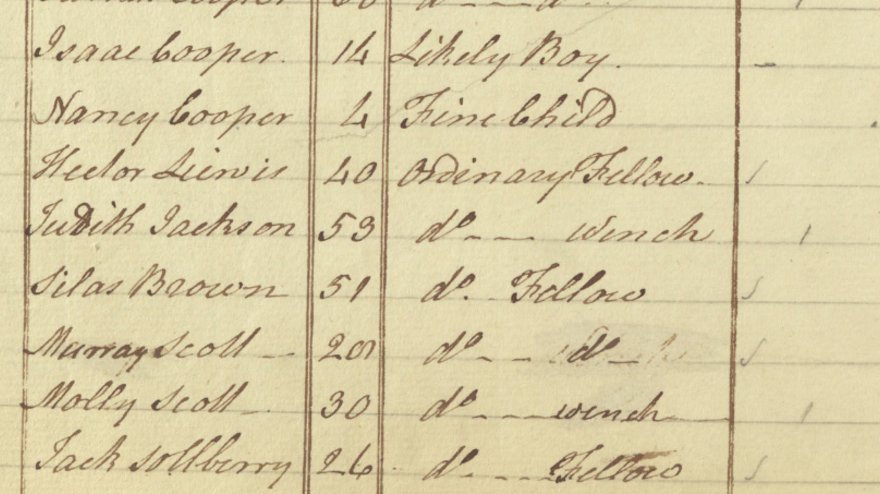 Cooper 30 dº - - - dº - 1
Isaac Cooper. 14 Likely Boy. -
Nancy Cooper 4 Fine Child
Hector Liewis 40 Ordinary Fellow. /
Judith Jackson 53 dº - - wench /
Silas Brown 51 dº. Fellow /
Murray Scott - 20 dº - - dº /
Molly Scott - 30 dº - - - wench /
Jack Sollberry 26 dº - - - Fellow /